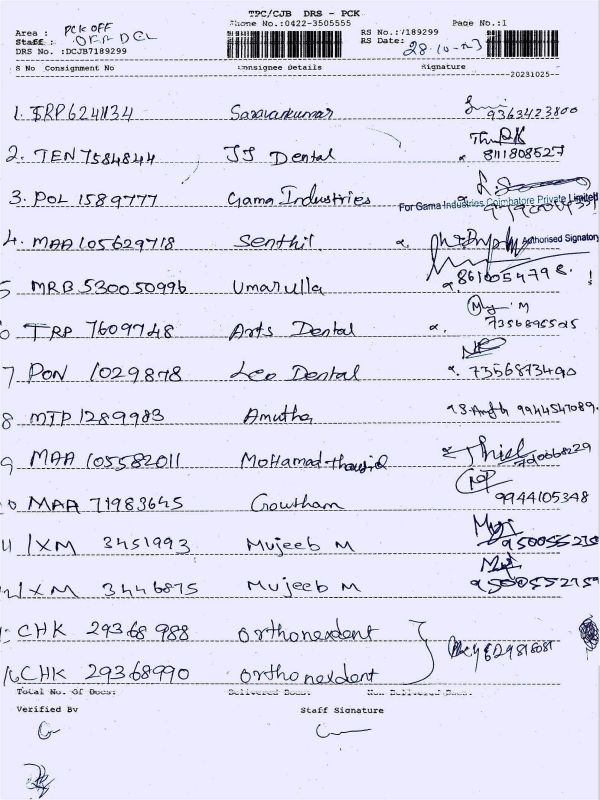 TPC/CJB DRS - PCK
Phone No.:0422-3505555
Page No.:1
Area : PCK OFF
Staff : OFF DCL
DRS No. :DCJB7189299
RS No.:7189299
RS Date: 28.10-23
S No Consignment No Consignee Details Signature
20231025
1. TRP6241134 Saravankumar 9363423800
2. TEN 7584844 JJ Dental 8111808527
3. POL 1589777 Gama Industries
For Gama Industries Coimbatore Private Limited
4. MAA 105629718 Senthil
Authorised Signatory
5 MRB 530050996 Umarulla
6 TRP 7609748 Arts Dental 7356895515
7 PON 1029878 Leo Dental 7356873490
8 MTP 1289983 Amutha 9944547089.
9 MAA 105582011 Mohamad
10 MAA 71983645 Gowtham 9944105348
11 IXM 3451993 Mujeeb M
12 IXM 3446875 Mujeeb M
CHK 29368988 Orthonexdent
CHK 29368990 Orthonexdent
Total No. Of Docs: Delivered Docs: Non Delivered Docs:
Verified By Staff Signature